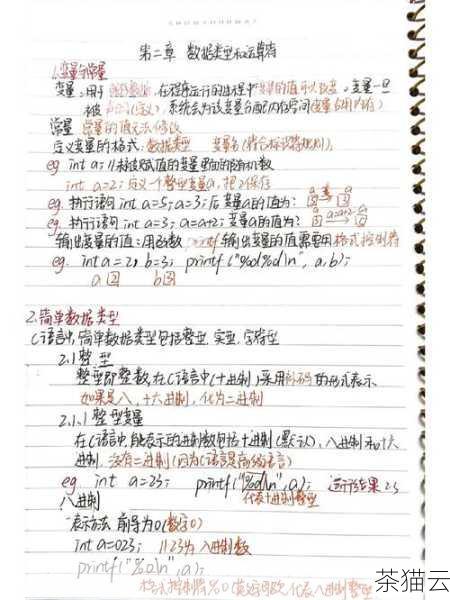 第二章 数据类型和运算符
1.变量与常量
变量:用于 在程序运行的过程中变量的值可以改变。变量一旦
被 (定义),系统会为该变量分配内存空间(变量占用内存)
常量 常量的值无法修改
定义变量的格式:数据类型 变量名(符合标识符规则);
eg int a; //未被赋值的变量里面的随机数
int a=2; 定义一个整型变量a,把2保存
eg 执行语句 int a=5; a=3; 后变量a的值为:
eg 执行语句 int a=3; a=a+2; 变量a的值为?
输出变量的值:用函数 printf 输出变量的值需要用格式控制符
eg. int a=2, b=3; printf("%d%d\n", a,b);
a 2 b 3
2.简单数据类型
C语言中,简单数据类型包括整型、实型、字符型
2.1 整型
整型即整数,在C语言中(十进制)采用补码的形式表示
如果是八、十六进制,化为二进制
2.1.1 整型变量
在C语言中,能表示的进制数包括十进制(默认)、八进制和十六
进制,没有二进制(因为C语言是高级语言)
eg int a=23; printf("%d\n",a); 运行结果23
八进制 代表十进制整型
表示方法 前导为0(数字0)
int a=023; //23为八进制数
printf("%o\n",a);
格式控制符%o(英文字母),代表八进制整型
茶猫云